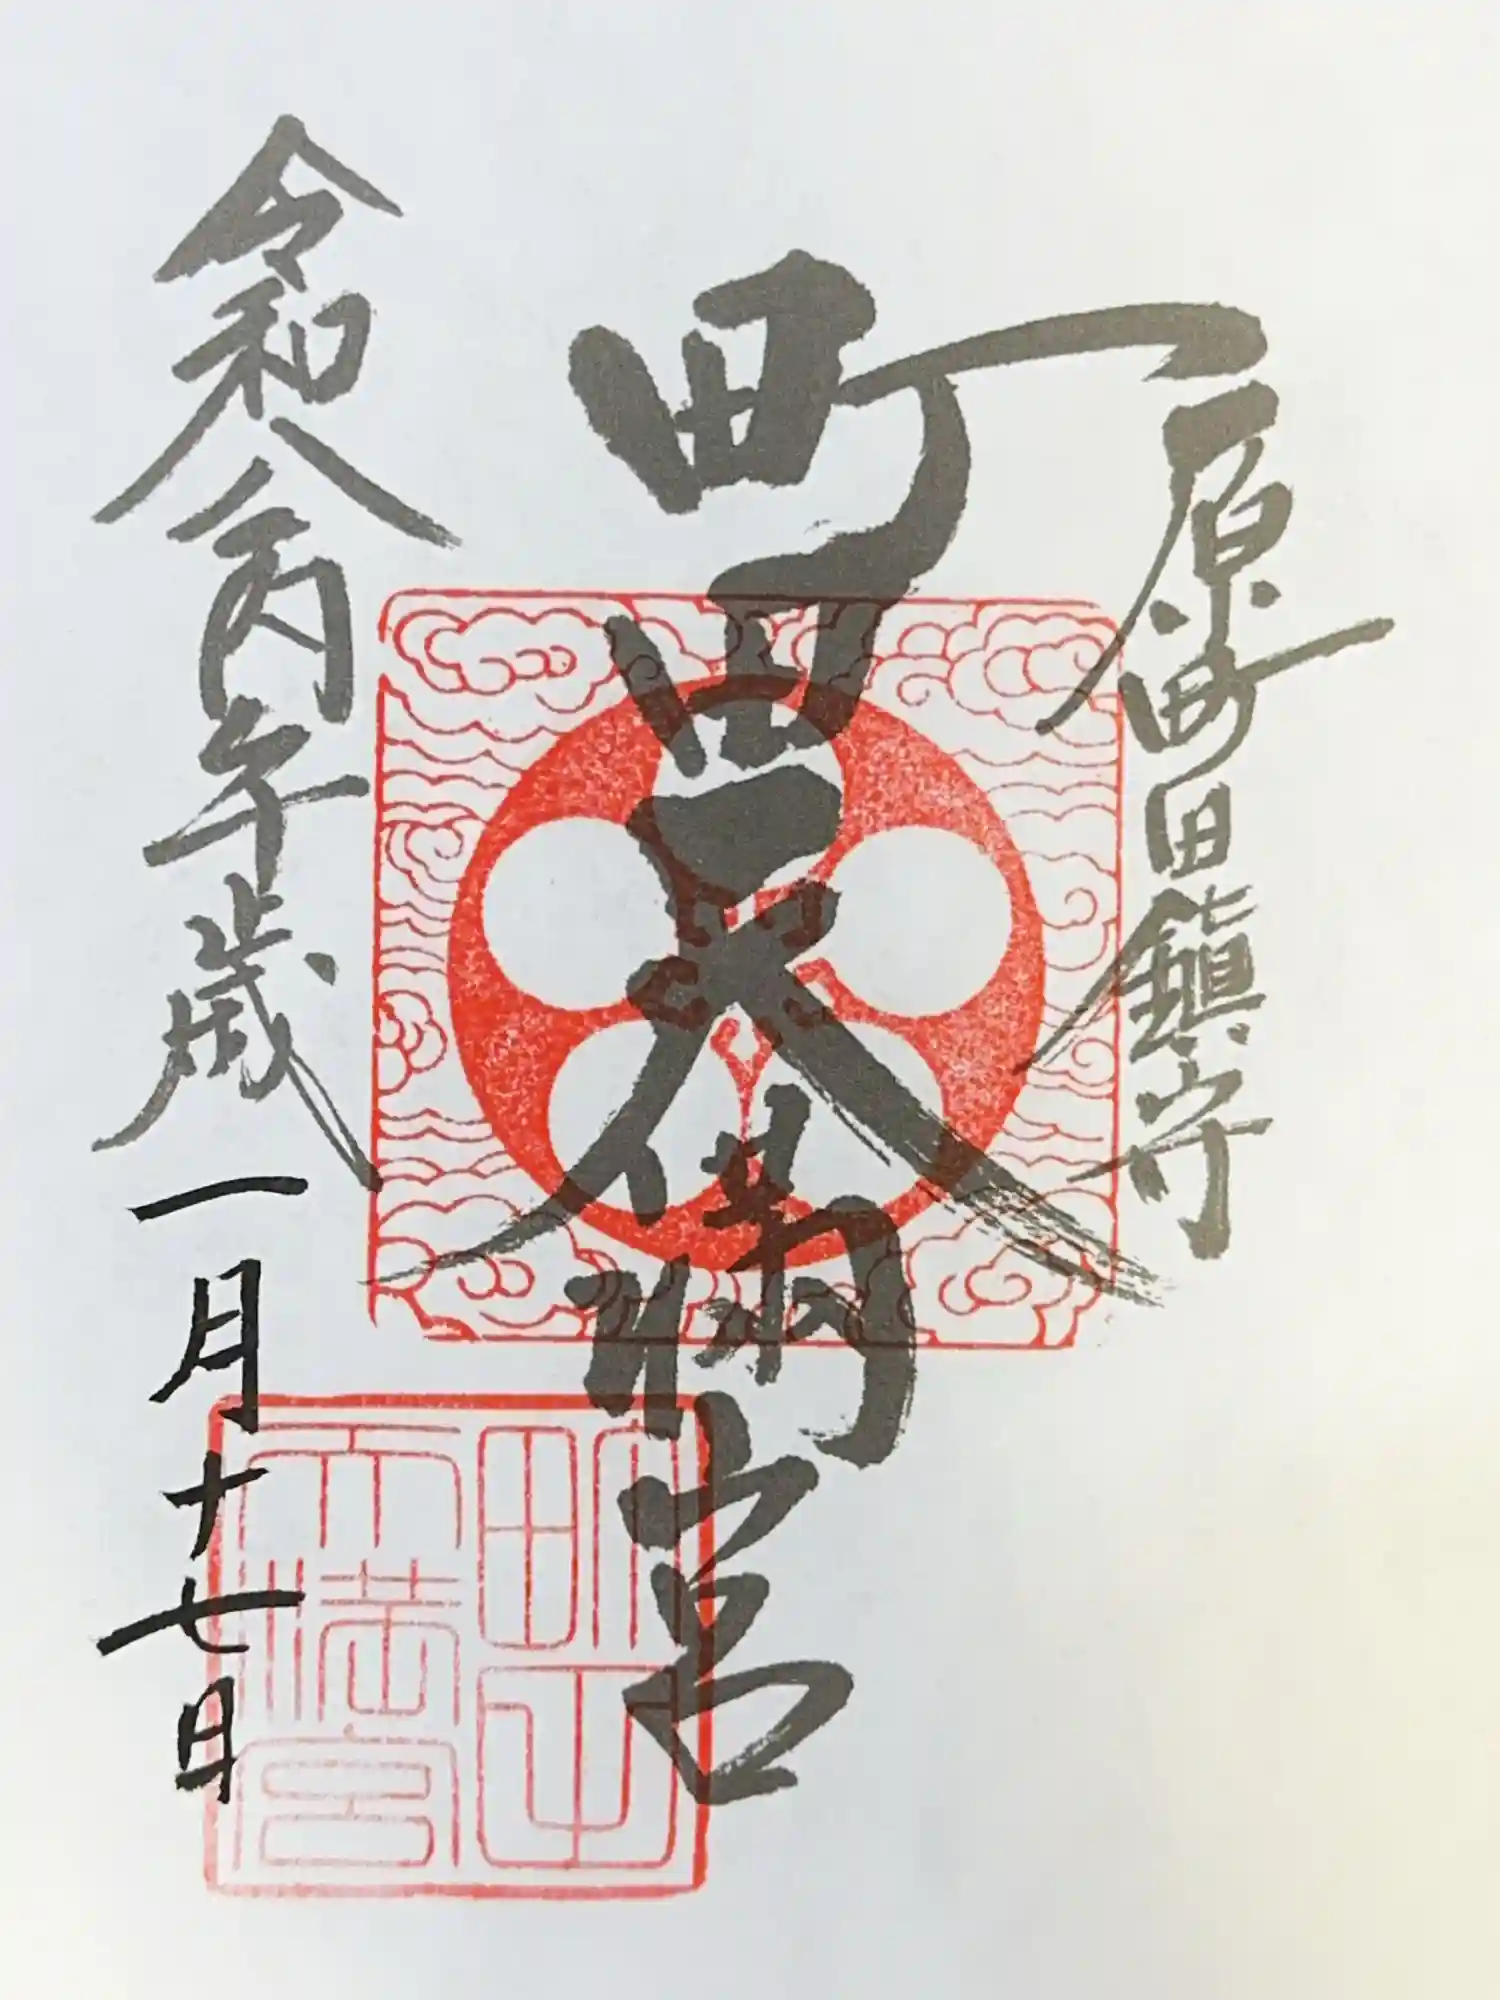 原町田鎮守
町田天満宮
令和八丙午年歳一月十七日
町田
天満宮